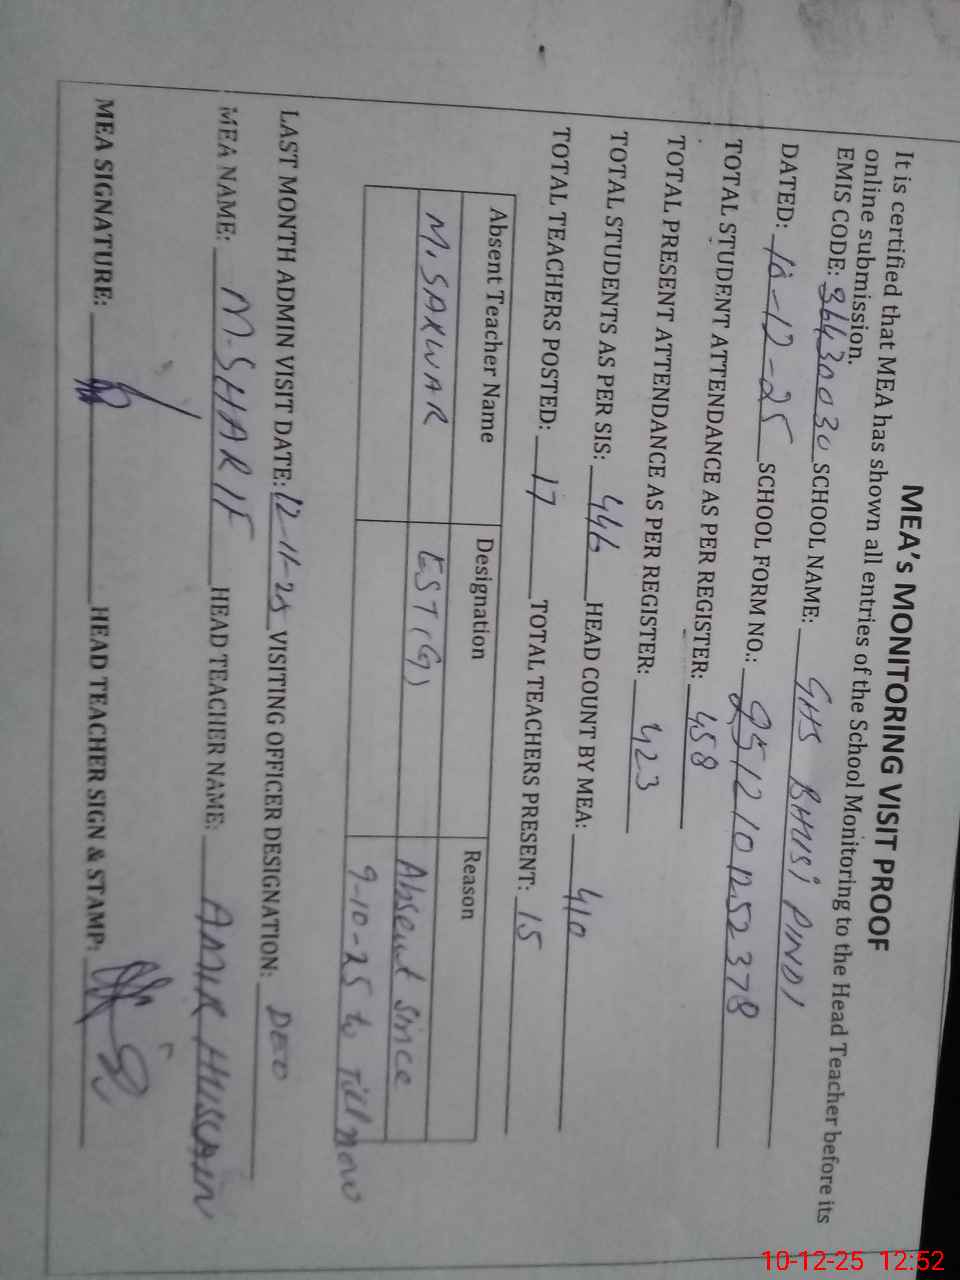 MEA's MONITORING VISIT PROOF
It is certified that MEA has shown all entries of the School Monitoring to the Head Teacher before its
online submission.
EMIS CODE: 36430030 SCHOOL NAME: GHS BHUSI PINDI
DATED: 10-12-25 SCHOOL FORM NO.: 2512101252378
TOTAL STUDENT ATTENDANCE AS PER REGISTER: 458
TOTAL PRESENT ATTENDANCE AS PER REGISTER: 423
TOTAL STUDENTS AS PER SIS: 446 HEAD COUNT BY MEA: 410
TOTAL TEACHERS POSTED: 17 TOTAL TEACHERS PRESENT: 15
Absent Teacher Name Designation Reason
M. SARWAR EST(G) Absent Since
9-10-25 to Till now
LAST MONTH ADMIN VISIT DATE: 12-11-25 VISITING OFFICER DESIGNATION:
MEA NAME: M. SHARIF HEAD TEACHER NAME: AMIR HUSSAIN
MEA SIGNATURE: HEAD TEACHER SIGN & STAMP:
10-12-25 12:52